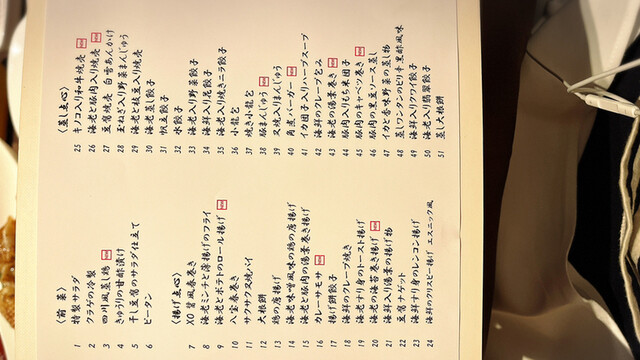 〈前菜〉
1 特製サラダ
2 クラゲの冷製
3 四川風蒸し鶏
4 きゅうりの甘酢漬け
5 干し豆腐のサラダ仕立て
6 ピータン
〈揚げ点心〉
7 XO醤風春巻き
8 海老ミンチと湯揚げのフライ
9 海老とポテトのロール揚げ
10 八宝春巻き
11 サクサク叉焼パイ
12 大根餅
13 鶏の唐揚げ
14 海老味噌風味の鶏の唐揚げ
15 海老と豚肉の湯葉巻き揚げ
16 カレーサモサ
17 揚げ餅餃子
18 海鮮のクレープ焼き
19 海老すり身のトースト揚げ
20 海老の海苔巻き揚げ
21 海鮮入り湯葉の揚げ物
22 豆腐ナゲット
23 海鮮すり身のレンコン揚げ
24 海鮮のクリスピー揚げ エスニック風
〈蒸し点心〉
25 キノコ入り和牛焼売
26 海老と豚肉入り焼売
27 豆腐焼売 白雪あんかけ
28 玉ねぎ入り野菜まんじゅう
29 海老と枝豆入り焼売
30 海老蒸し餃子
31 帆立餃子
32 水餃子
33 海老入り野菜餃子
34 海鮮入り花餃子
35 海老入り焼きニラ餃子
36 小龍包
37 焼き小龍包
38 豚まんじゅう
39 叉焼入りまんじゅう
40 角煮バーガー
41 イカ団子入りハーブスープ
42 海鮮のクレープ包み
43 海老の湯葉巻き
44 豚肉入りもち米団子
45 豚肉のキャベツ巻き
46 豚肉の黒豆ソース蒸し
47 イカと香味野菜の蒸し物
48 蒸しワンタンのピリ辛黒酢風味
49 海鮮入りクワイ餃子
50 海老入り翡翠餃子
51 蒸し大根餅